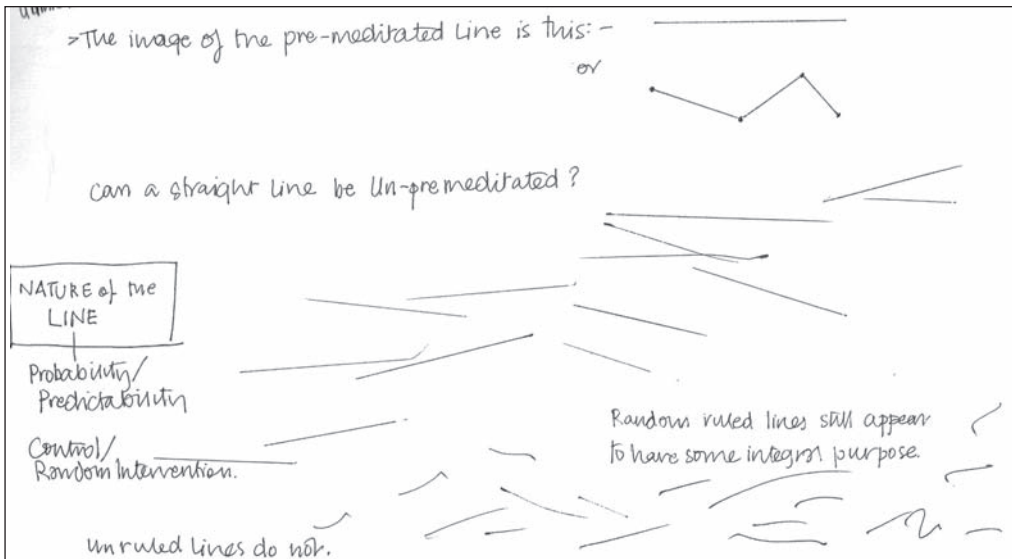 >The image of the pre-meditated Line is this:-
or
can a straight line be Un-premeditated?
NATURE of the
LINE
Probability/
Predictability
Control/
Random Intervention.
Random ruled lines still appear
to have some integral purpose.
unruled lines do not.